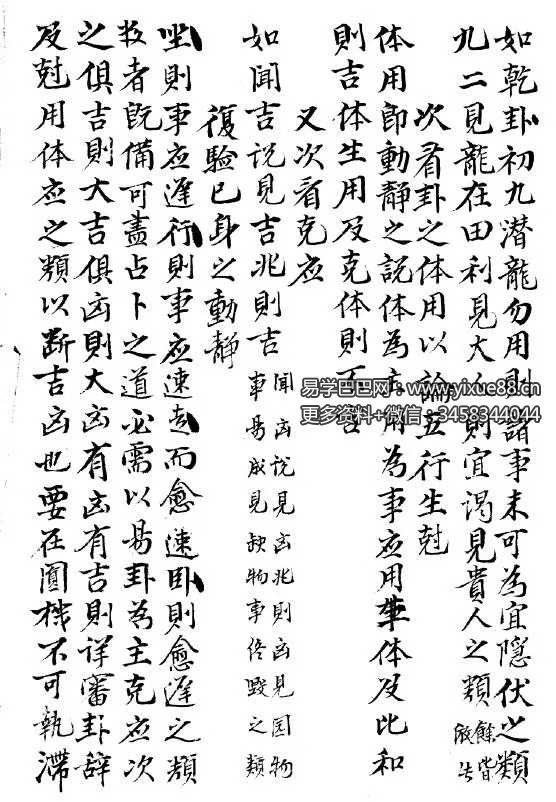 如乾卦初九潛龍勿用則諸事未可為宜隱伏之類
九二見龍在田利見大人則宜謁見貴人之類餘皆倣此
次看卦之体用以論五行生尅
体用即動静之説体為主用為事应用生体及比和
則吉体生用及克体則不吉
又次看克应
如聞吉説見吉兆則吉
聞凶説見凶兆則凶見圓物
事易成見缺物事終毀之類
復驗已身之動靜
坐則事应遲行則事应速走而愈速卧則愈遲之類
数者既備可盡占卜之道必需以易卦為主克应次
之俱吉則大吉俱凶則大凶有凶有吉則详審卦辞
及尅用体应之類以断吉凶也要在圓機不可執滯
易学巴巴网：www.yixue88.com
更多资料+微信：3458344044